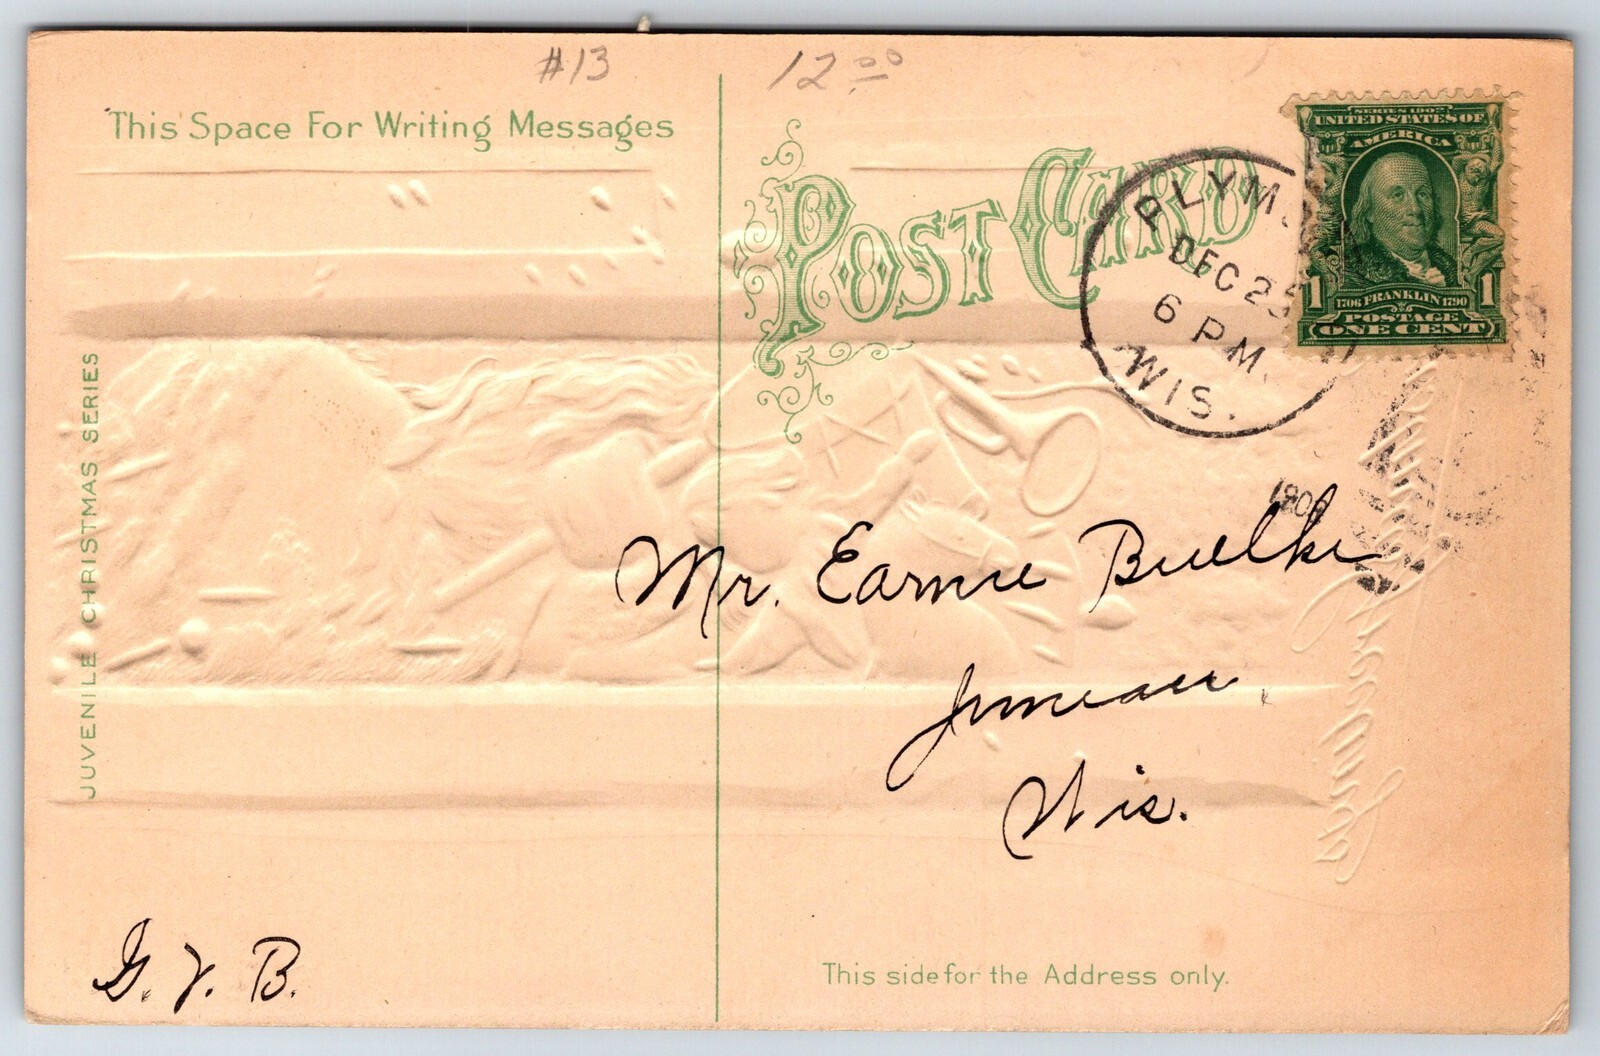 #13
12.00
This Space For Writing Messages
POST CARD
SERIES 1902
UNITED STATES OF
AMERICA
1 1
1706 FRANKLIN 1790
POSTAGE
ONE CENT
DEC 25
6 P M.
WIS.
JUVENILE CHRISTMAS SERIES
Mr. Earnie Buelke
Juneau,
Wis.
G. V. B.
This side for the Address only.